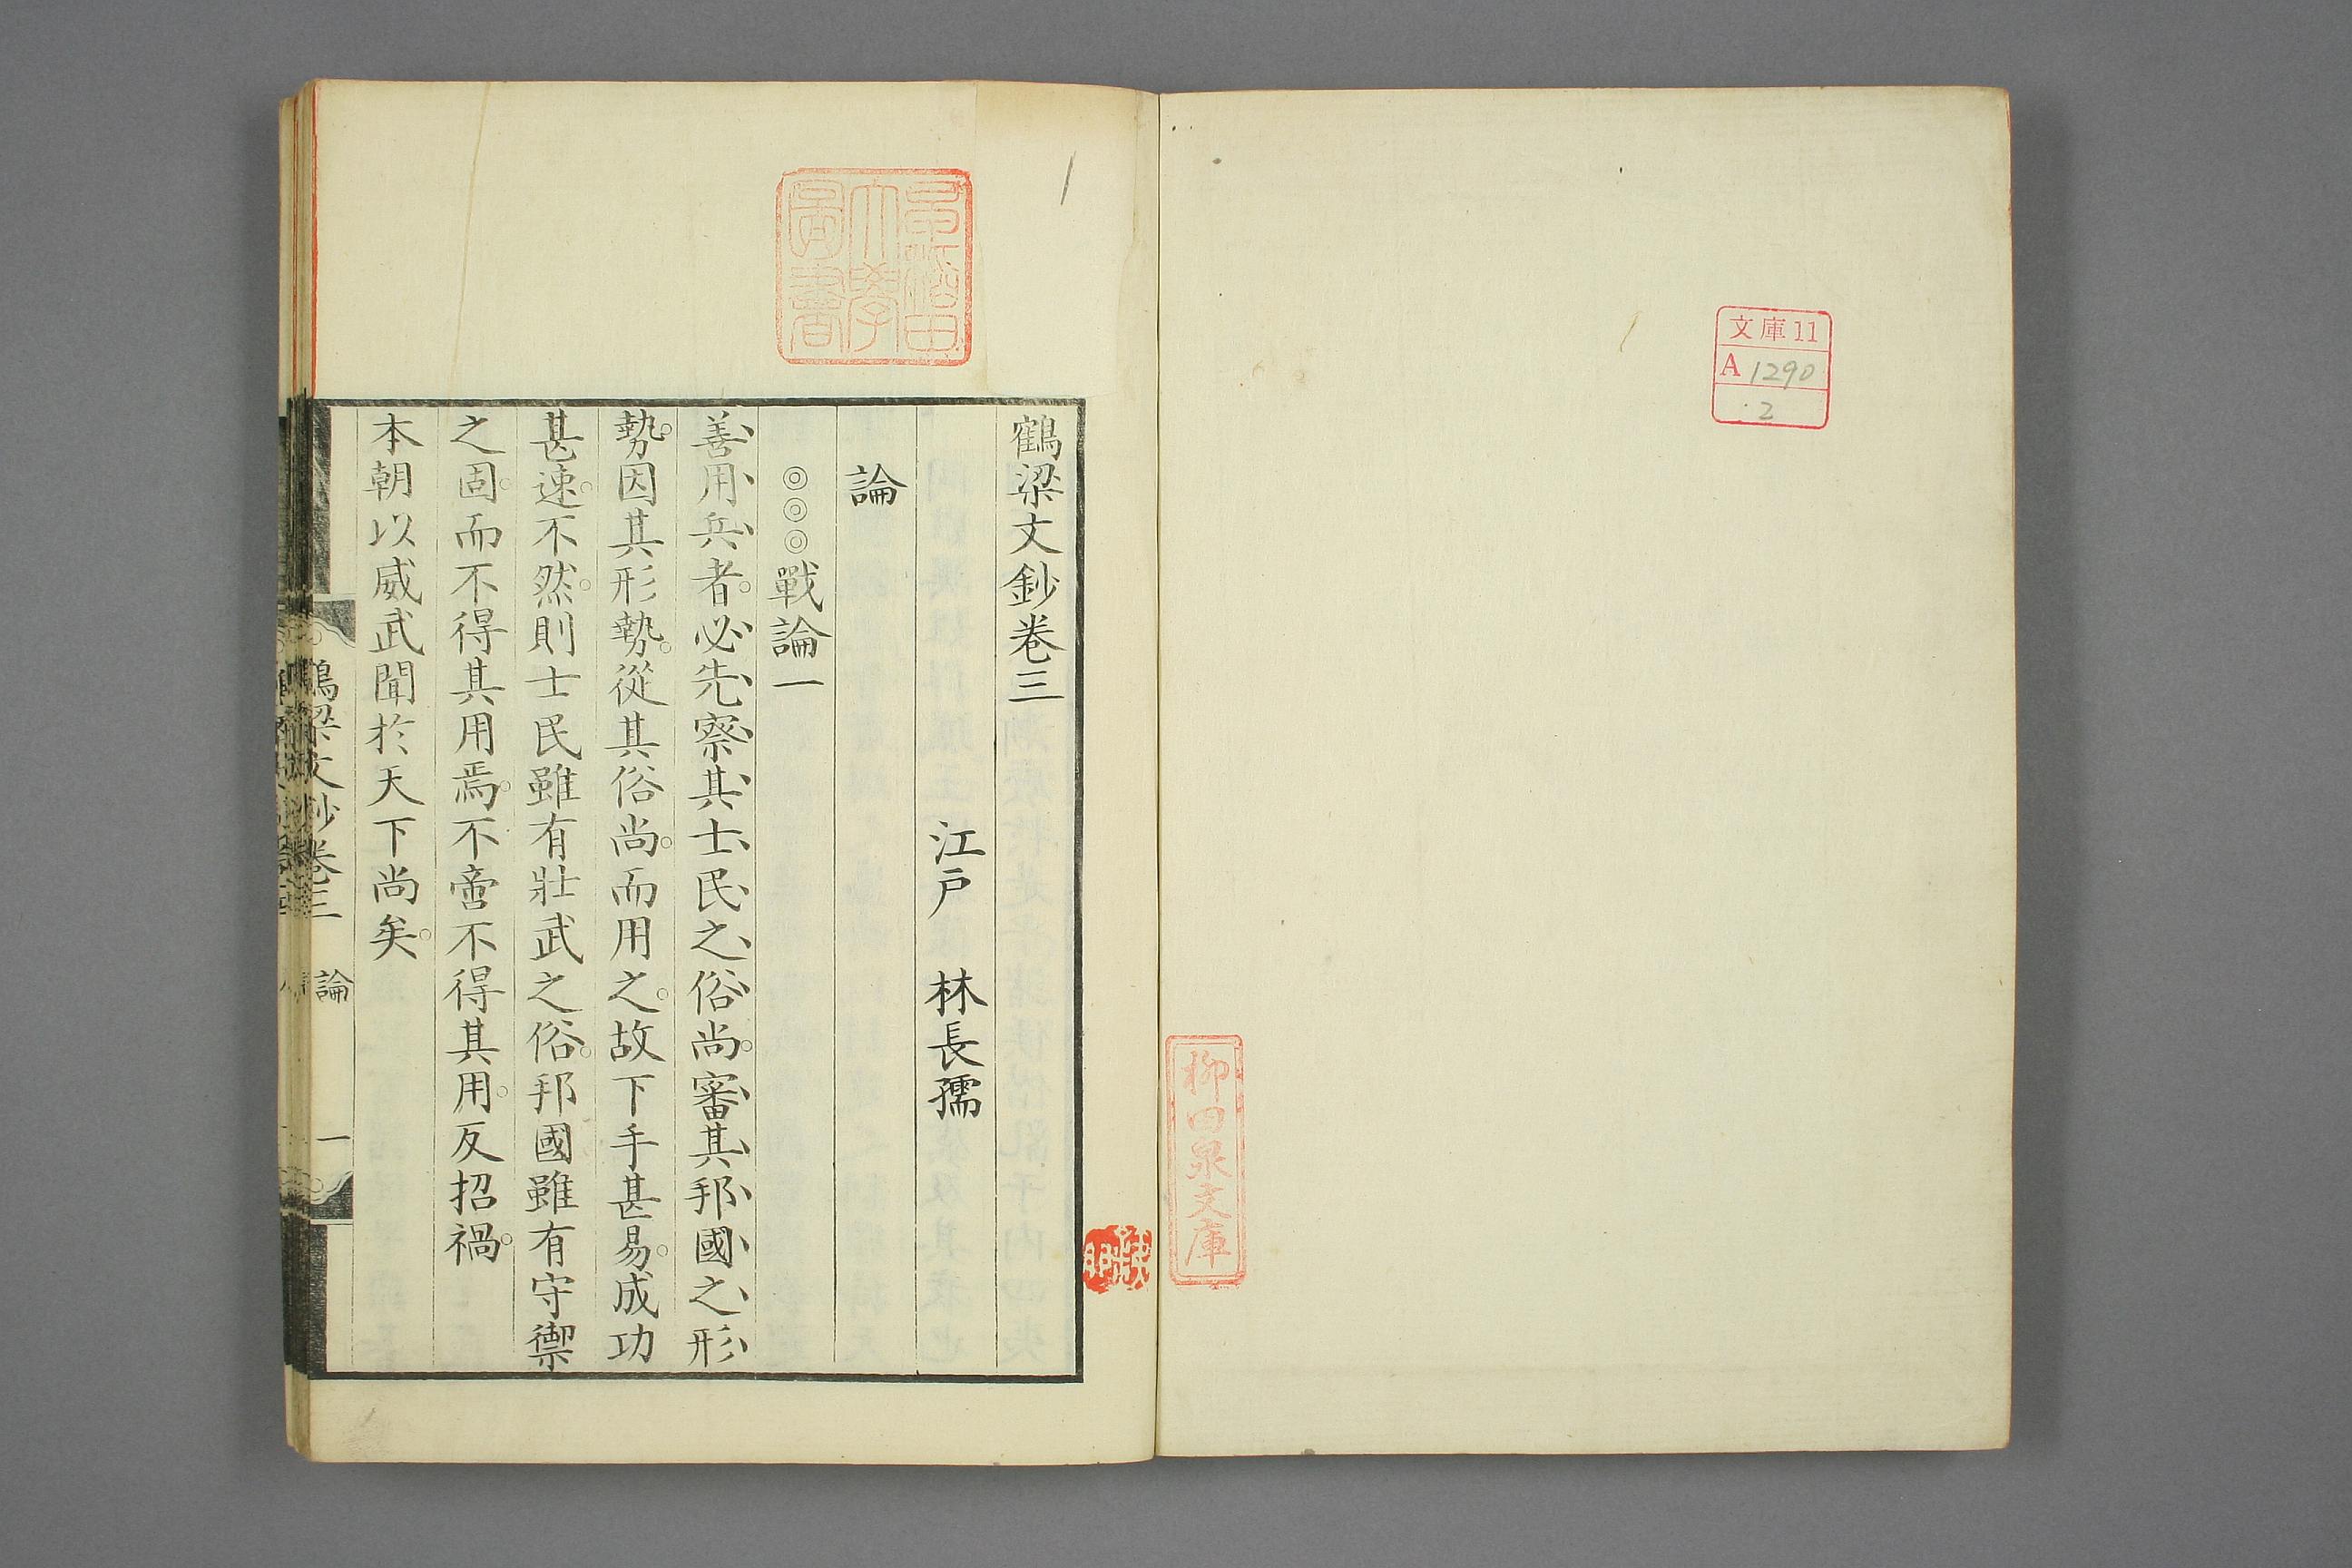 文庫11
A 1290
2
柳田泉文庫
早稲田
大學
圖書
1
鶴梁文鈔卷三
江戸 林長孺
論
◎◎◎戰論一
善用兵者。必先察其士民之俗尚。審其邦國之形
勢。因其形勢。從其俗尚。而用之。故下手甚易。成功
甚速。不然。則士民雖有壯武之俗。邦國雖有守禦
之固。而不得其用焉。不啻不得其用。反招禍。
本朝以威武聞於天下尚矣。
鶴梁文鈔卷三 論 一